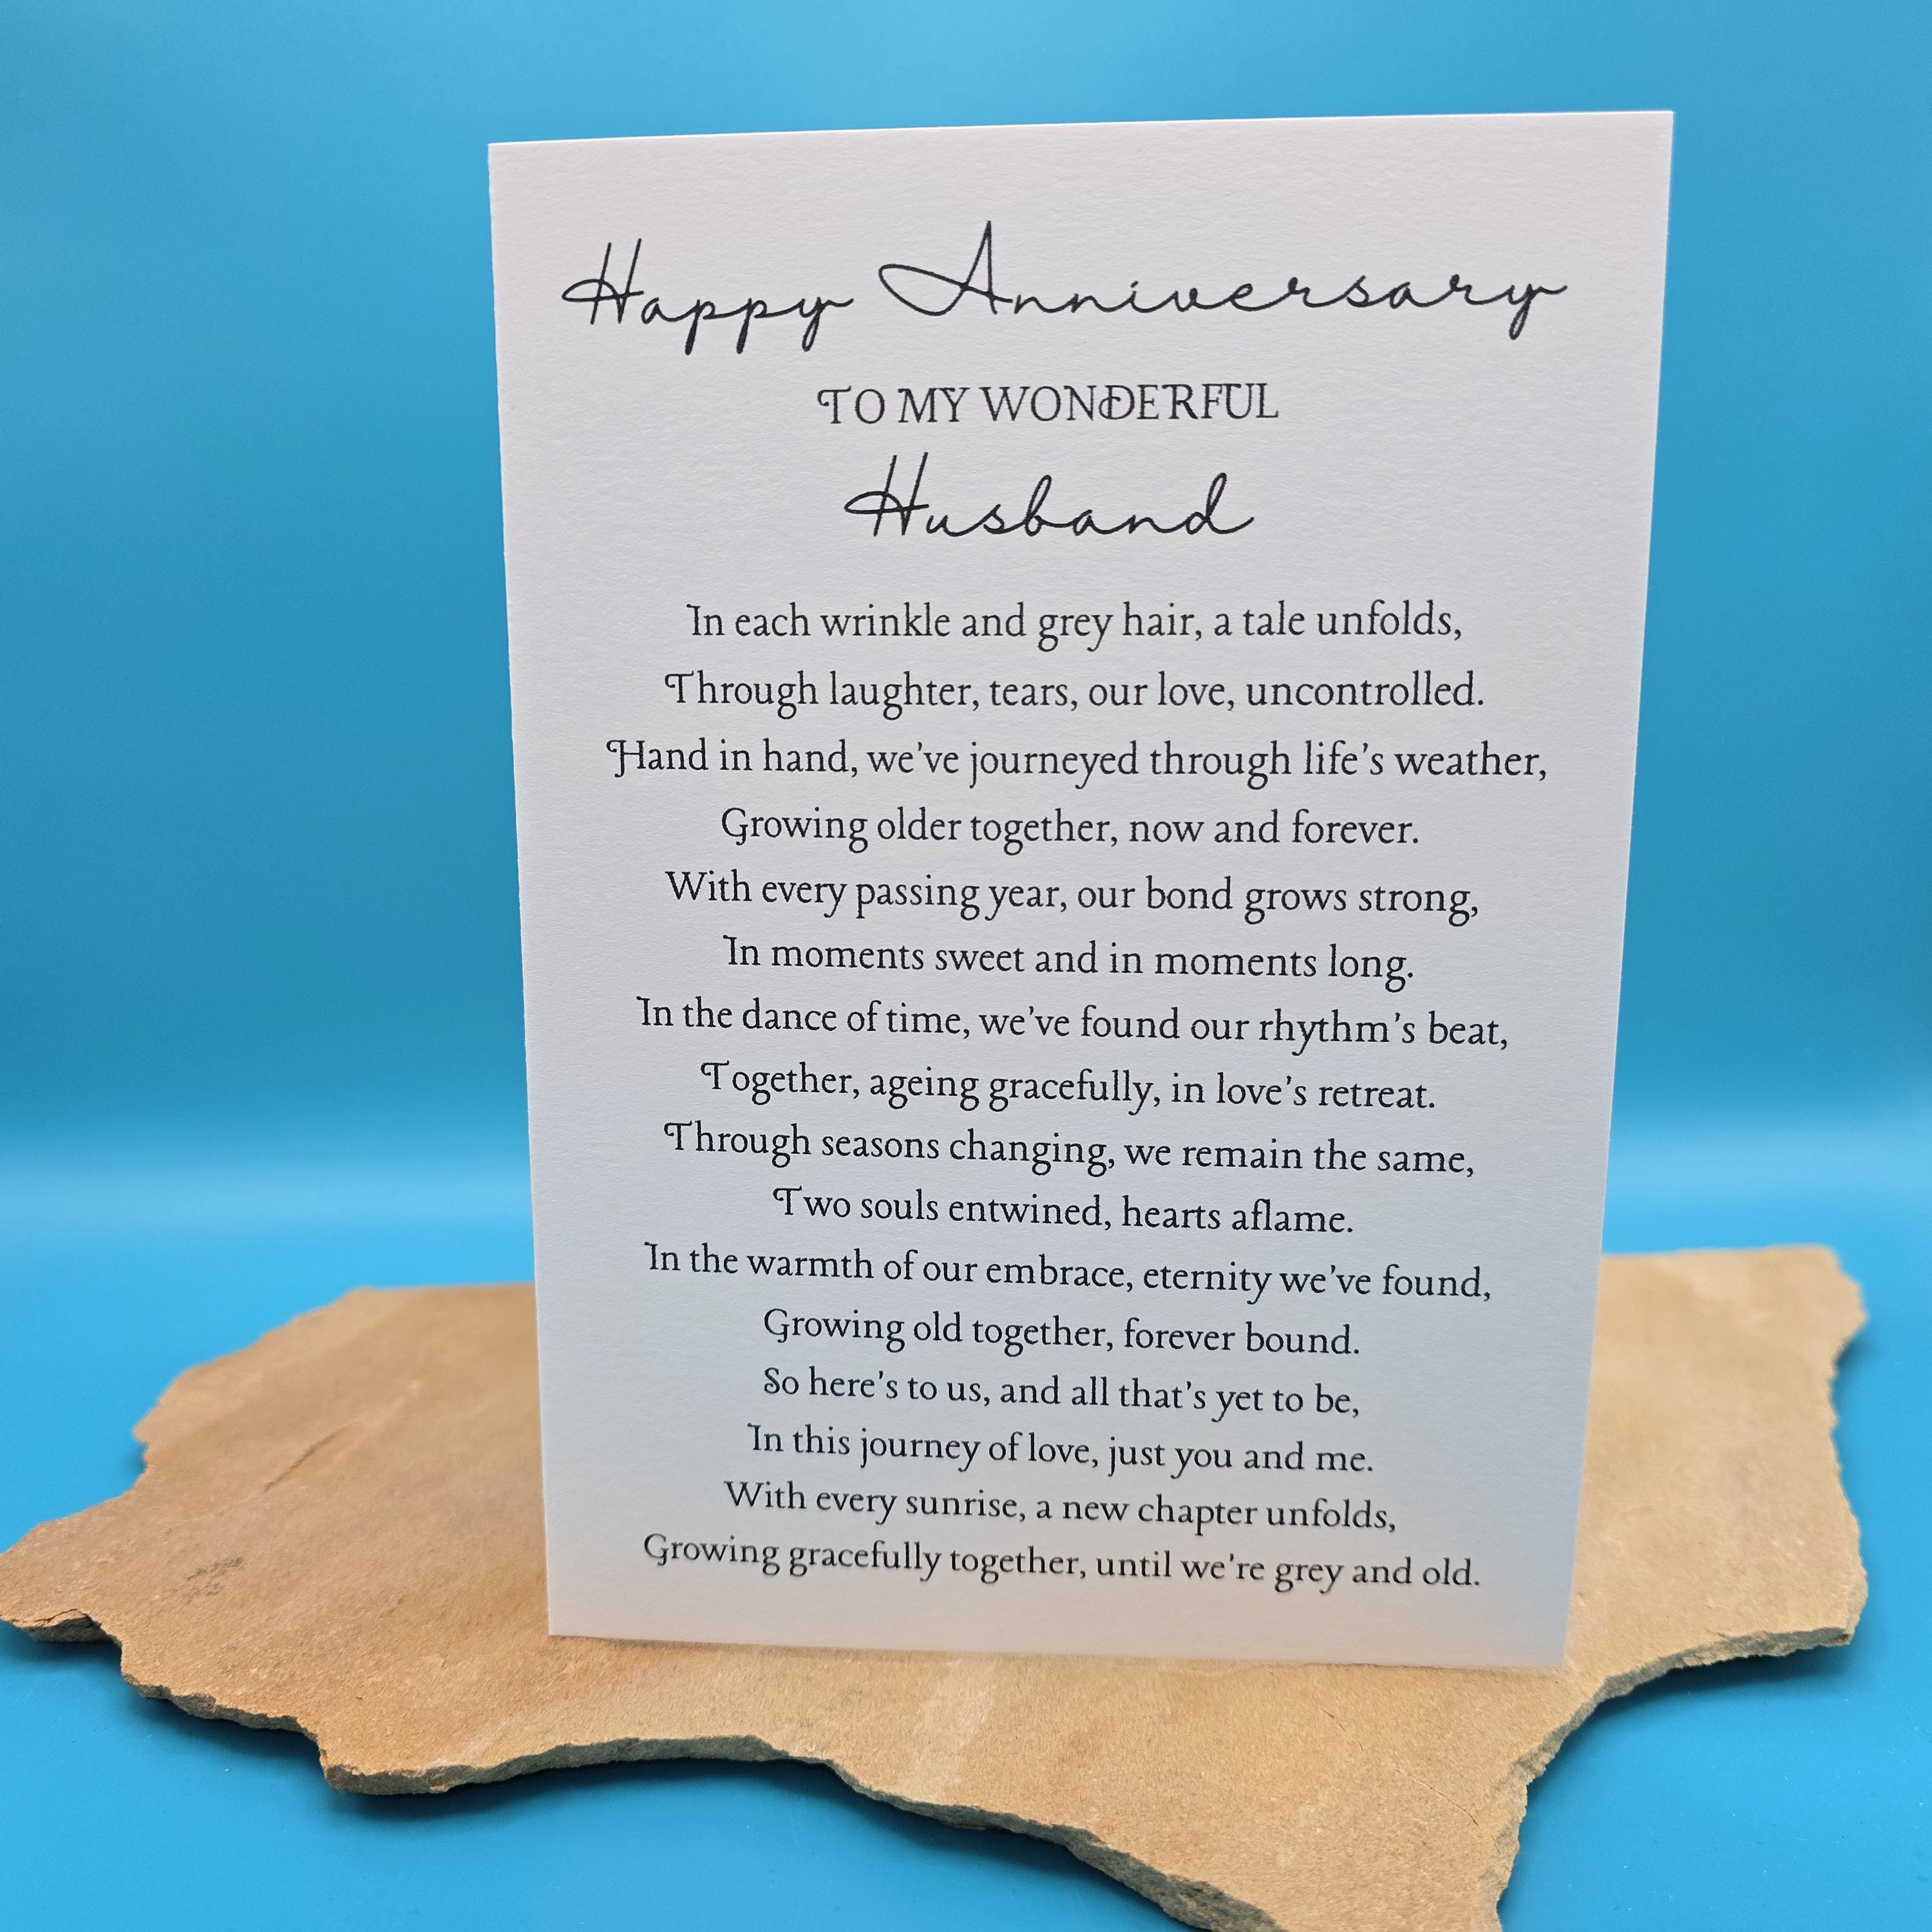 Happy Anniversary
TO MY WONDERFUL
Husband
In each wrinkle and grey hair, a tale unfolds,
Through laughter, tears, our love, uncontrolled.
Hand in hand, we've journeyed through life's weather,
Growing older together, now and forever.
With every passing year, our bond grows strong,
In moments sweet and in moments long.
In the dance of time, we've found our rhythm's beat,
Together, ageing gracefully, in love's retreat.
Through seasons changing, we remain the same,
Two souls entwined, hearts aflame.
In the warmth of our embrace, eternity we've found,
Growing old together, forever bound.
So here's to us, and all that's yet to be,
In this journey of love, just you and me.
With every sunrise, a new chapter unfolds,
Growing gracefully together, until we're grey and old.